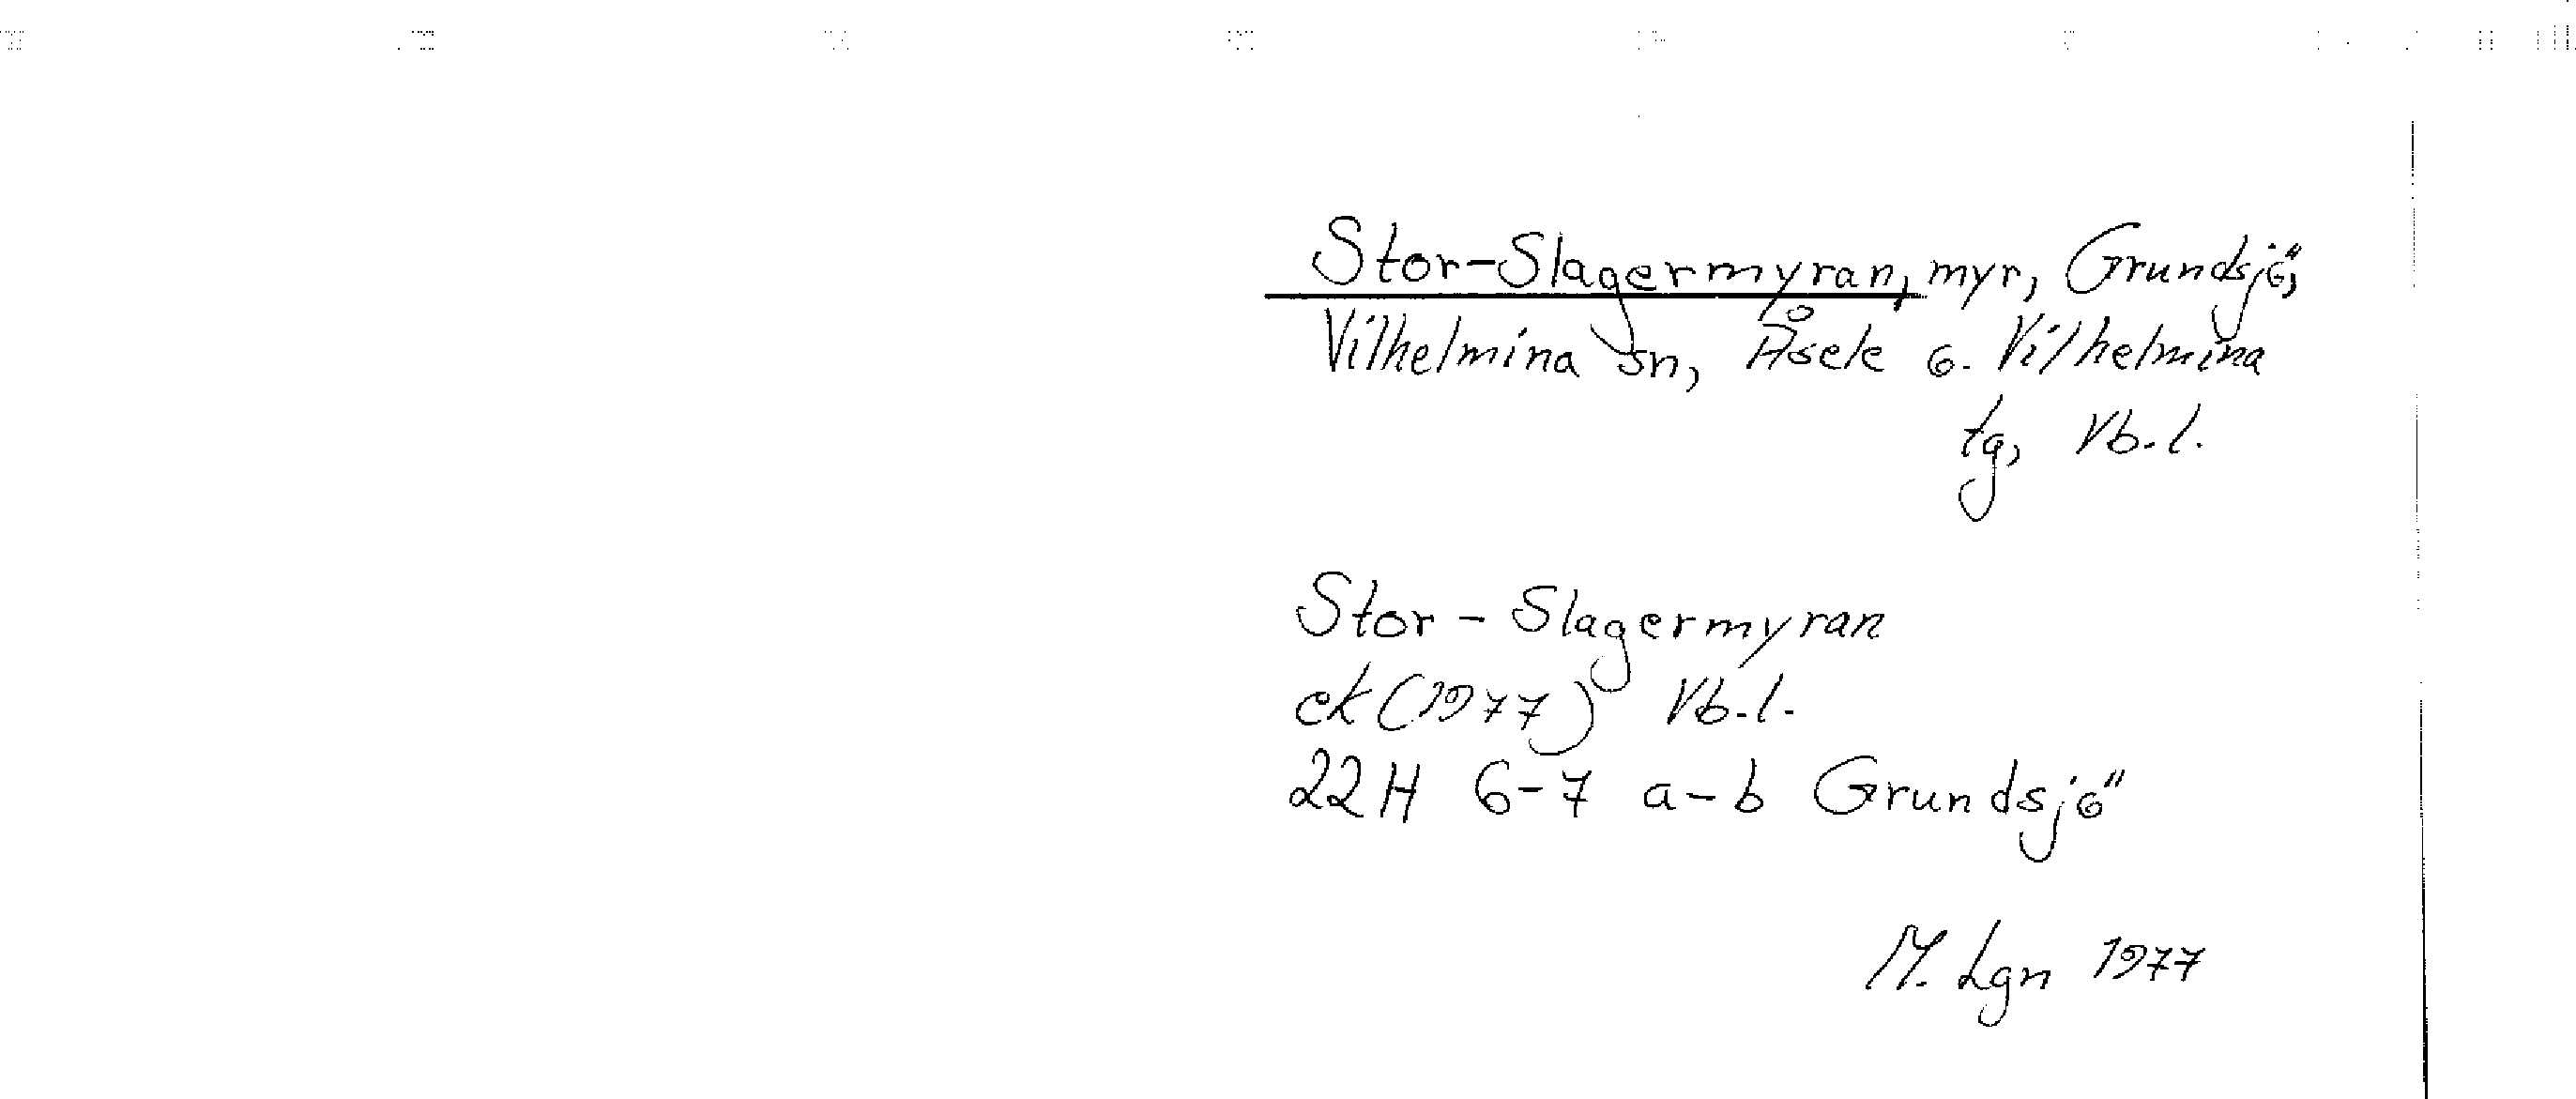 Stor-Slagermyran, myr, Grundsjö,
Vilhelmina sn, Åsele o. Vilhelmina
tg, Vb.l.
Stor - Slagermyran
ek (1977) Vb.l.
22H 6-7 a-b Grundsjö
M. Lgn 1977